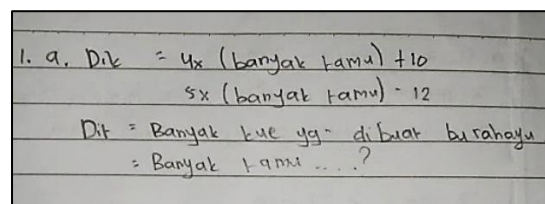 1. a. Dik = 4x (banyak tamu) + 10
5x (banyak tamu) - 12
Dit = Banyak kue yg dibuat bu rahayu
= Banyak tamu ....?